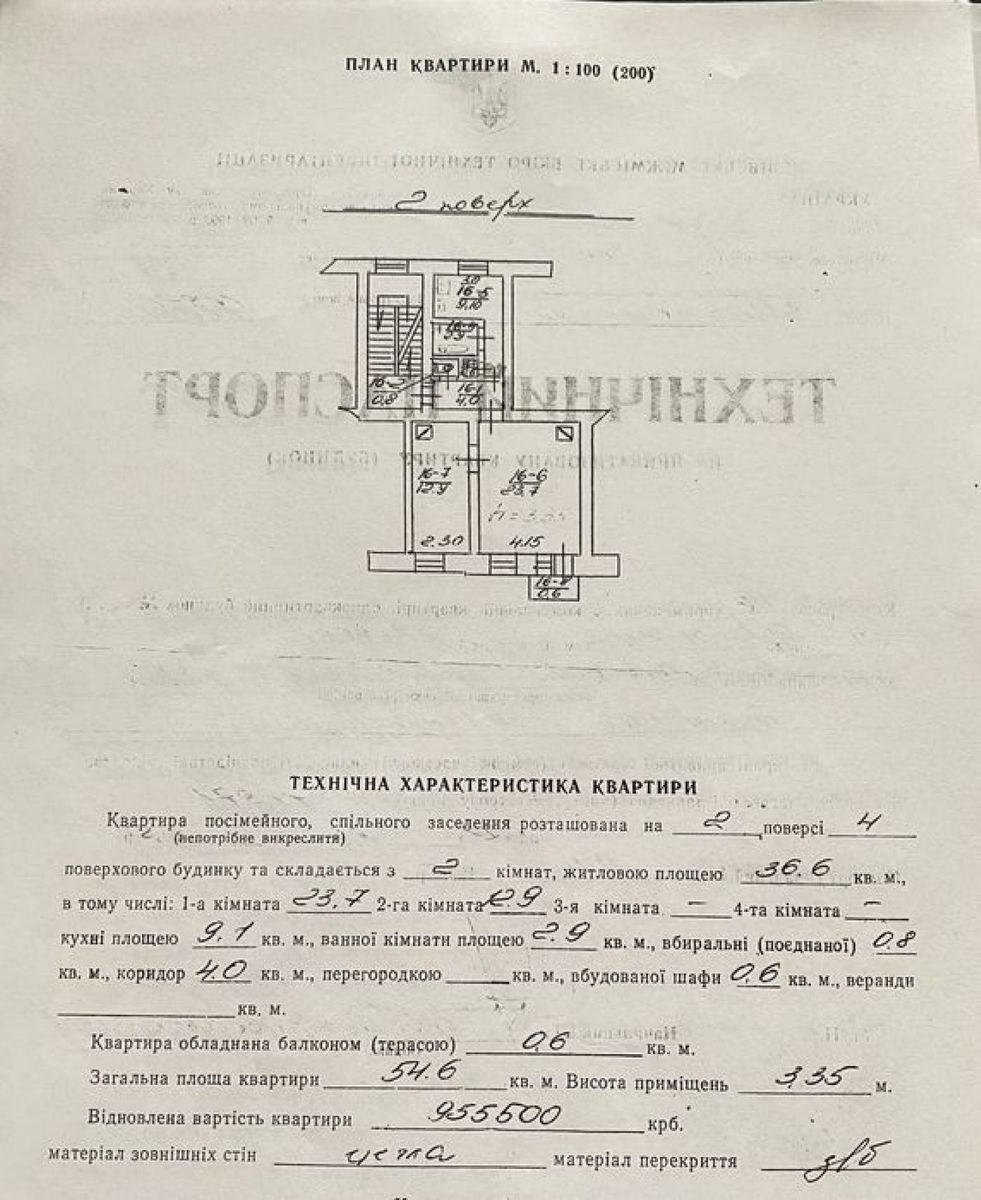 ПЛАН КВАРТИРИ М. 1 : 100 (200)
2 поверх
16-5
9,10
16-2
0,8
16-1
4,0
16-7
12.9
16-6
23,7
h=3.35
2.30
4.15
16-8
0,6
ТЕХНІЧНА ХАРАКТЕРИСТИКА КВАРТИРИ
Квартира посімейного, спільного заселення розташована на 2 поверсі 4
(непотрібне викреслити)
поверхового будинку та складається з 2 кімнат, житловою площею 36.6 кв. м.,
в тому числі: 1-а кімната 23,7 2-га кімната 12.9 3-я кімната – 4-та кімната –
кухні площею 9,1 кв. м., ванної кімнати площею 2.9 кв. м., вбиральні (поєднаної) 0,8
кв. м., коридор 4.0 кв. м., перегородкою кв. м., вбудованої шафи 0,6 кв. м., веранди
кв. м.
Квартира обладнана балконом (терасою) 0,6 кв. м.
Загальна площа квартири 54.6 кв. м. Висота приміщень 3,35 м.
Відновлена вартість квартири 955500 крб.
матеріал зовнішніх стін цегла матеріал перекриття з/б